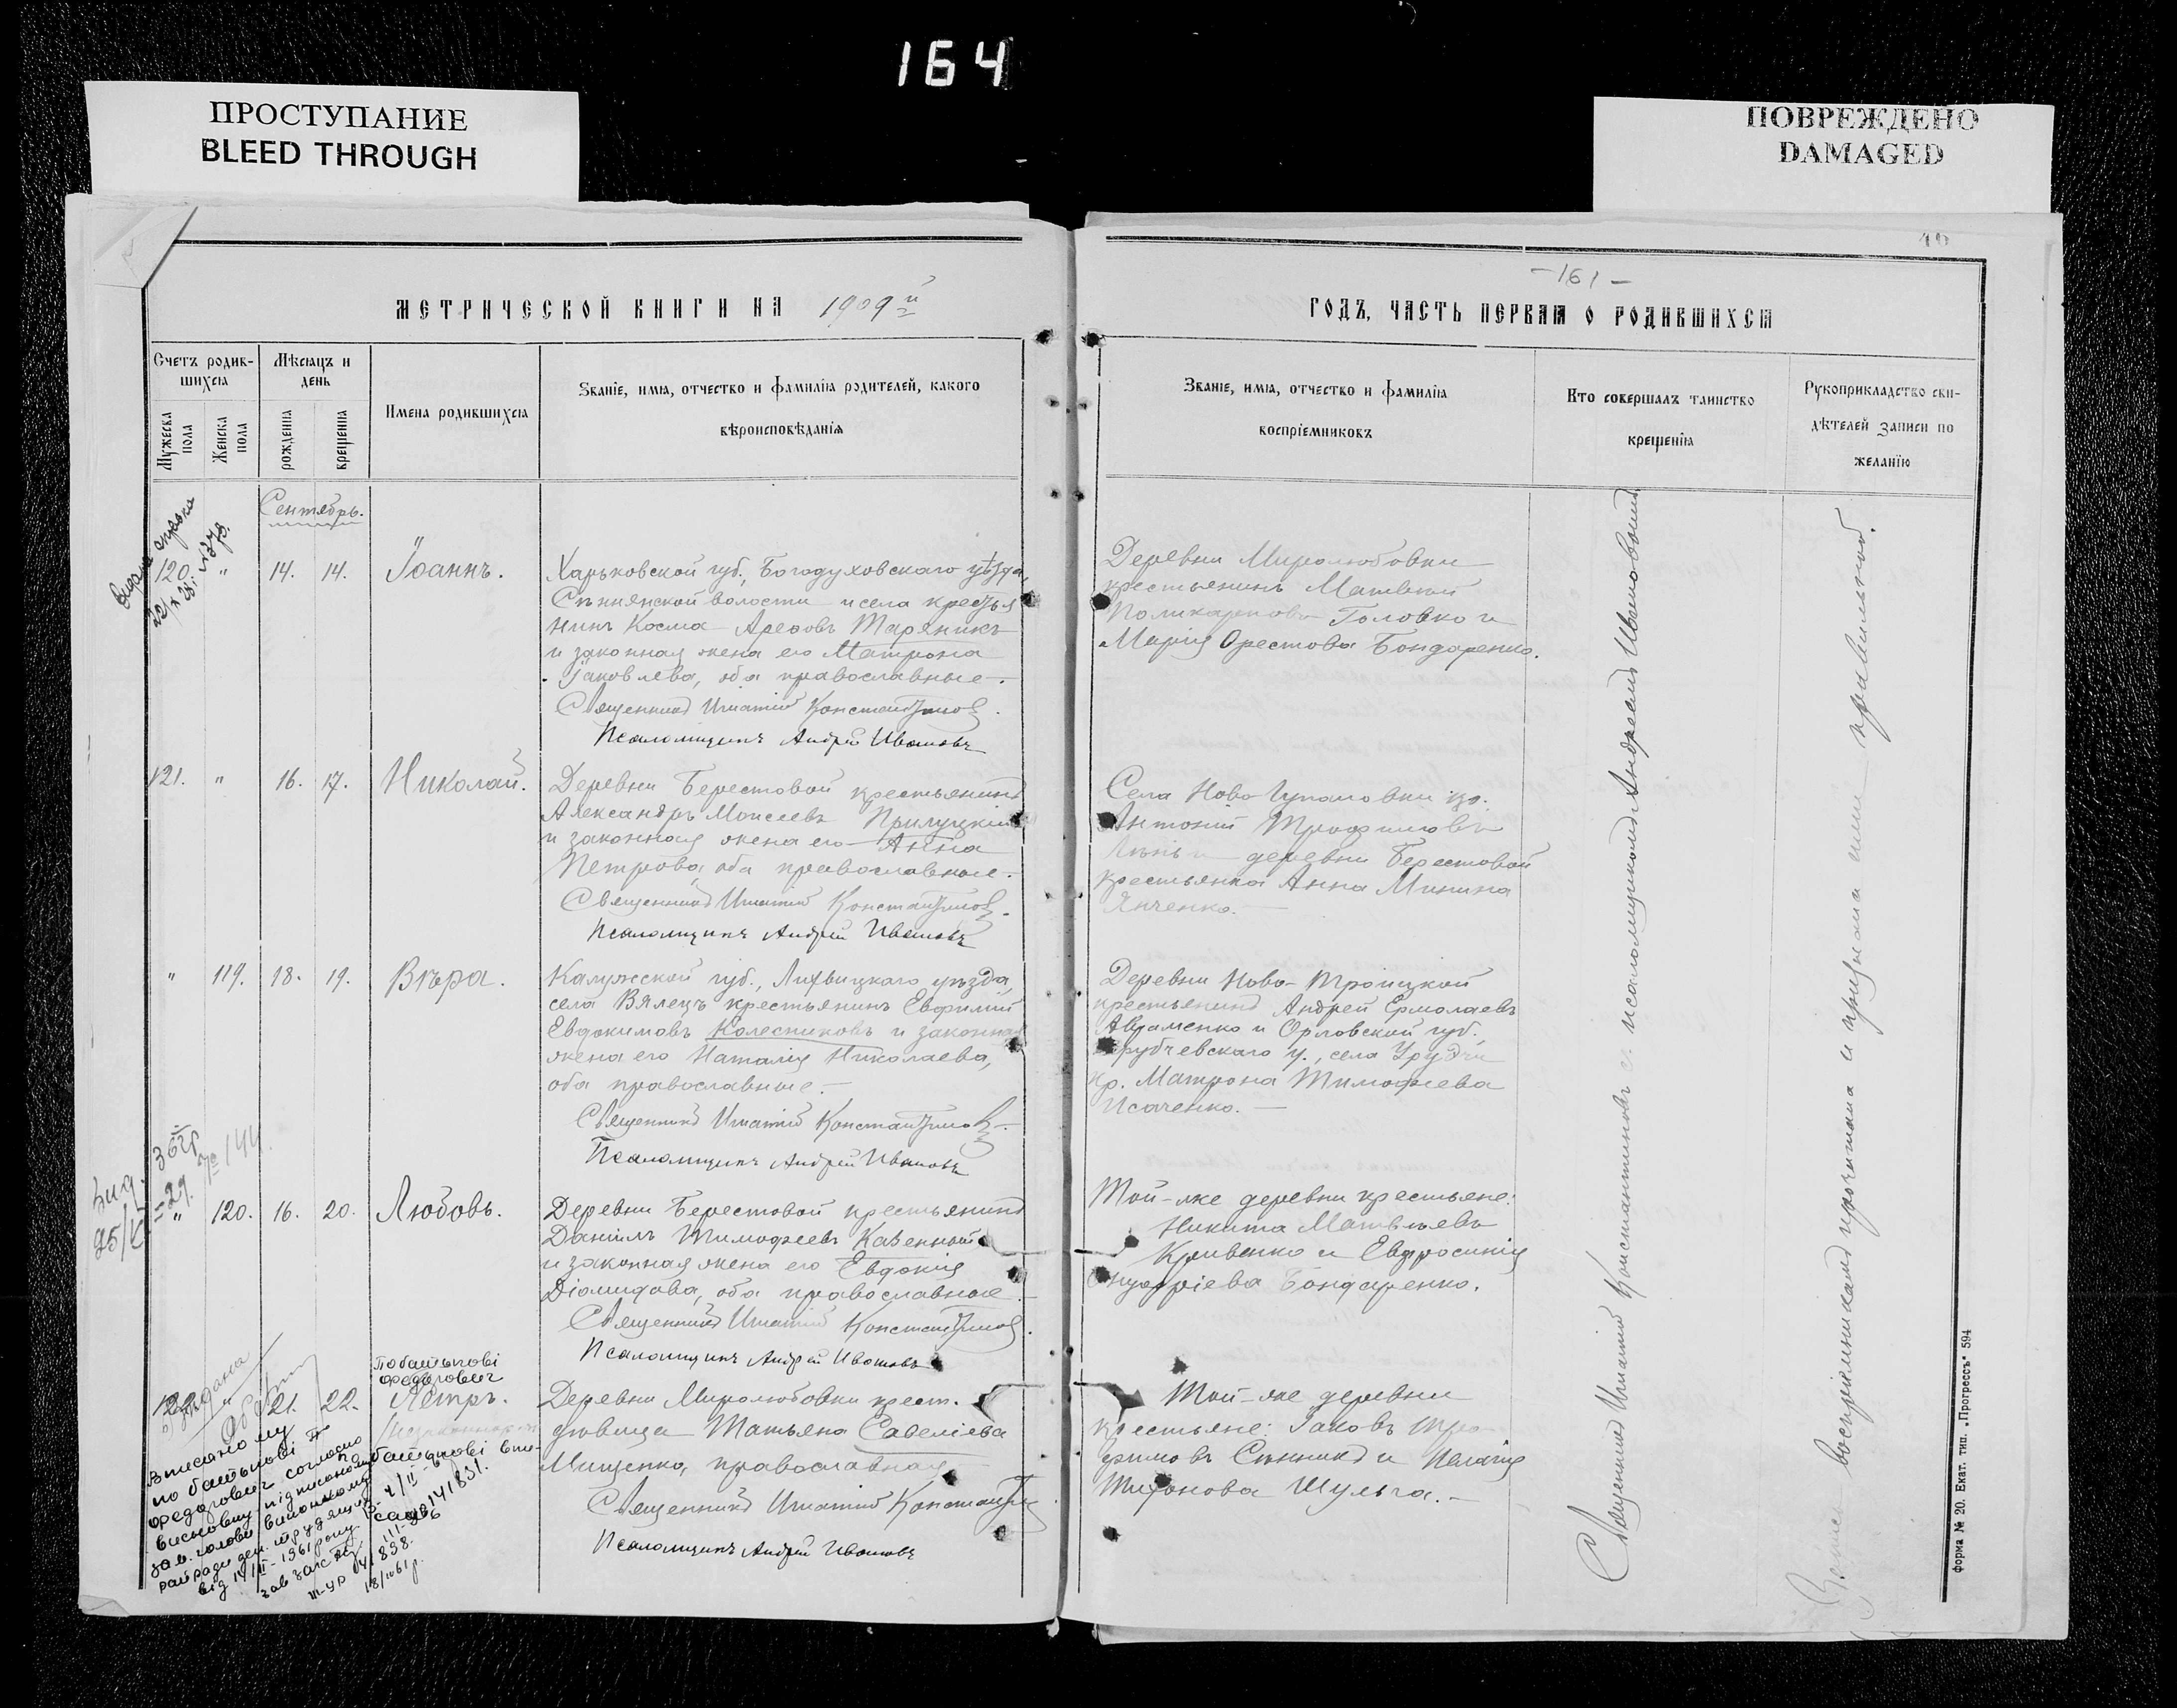 164
ПРОСТУПАНИЕ
BLEED THROUGH
ПОВРЕЖДЕНО
DAMAGED
МЕТРИЧЕСКОЙ КНИГИ НА 1909й
Счетъ родившихся
Мужеска пола
Женска пола
Мѣсяцъ и день
рожденія
крещенія
Имена родившихся
Званіе, имя, отчество и фамилія родителей, какого
вѣроисповѣданія
Сентябрь.
120. " 14. 14. Іоаннъ.
Харьковской губ., Богодуховскаго уѣзда,
Сѣннянской волости и села крестья
нинъ Косма Арефовъ Тараникъ
и законная жена его Матрона
Іаковлева, оба православные.
Священникъ Игнатій Константиновъ.
Псаломщикъ Андрей Ивановъ
121. " 16. 17. Николай.
Деревни Берестовой крестьянинъ
Александръ Моисеевъ Прилуцкій
и законная жена его Анна
Петрова, оба православные.
Священникъ Игнатій Константиновъ.
Псаломщикъ Андрей Ивановъ
" 119. 18. 19. Вѣра.
Калужской губ., Лихвицкаго уѣзда,
села Вялецъ крестьянинъ Евфимій
Евдокимовъ Колесниковъ и законная
жена его Наталія Николаева,
оба православные.
Священникъ Игнатій Константиновъ.
Псаломщикъ Андрей Ивановъ
" 120. 16. 20. Любовь.
Деревни Берестовой крестьянинъ
Даніилъ Тимофеевъ Казенный
и законная жена его Евдокія
Діомидова, оба православные.
Священникъ Игнатій Константиновъ.
Псаломщикъ Андрей Ивановъ
По батькові
Федорович
122. " 21. 22. Петръ.
Деревни Миролюбовки крест.
дѣвица Татьяна Савеліева
Мищенко, православная
Священникъ Игнатій Константинов
Псаломщикъ Андрей Ивановъ
Вписаному
по батькові
Федорович согласно
висновку підписаному
зам. голови виконкому
райради деп. трудящих
від 14/III-1961 року
зав загс
18/III 61 р.
-161-
ГОДЪ, ЧАСТЬ ПЕРВАЯ О РОДИВШИХСЯ
Званіе, имя, отчество и фамилія
воспріемниковъ
Кто совершалъ таинство
крещенія
Рукоприкладство сви-
дѣтелей записи по
желанію
Деревни Миролюбовки
крестьянинъ Матвей
Поликарповъ Головко и
Марія Орестова Бондаренко.
Села Ново-Гупаловки кр.
Антоній Трофимовъ
деревни Берестовой
крестьянка Анна Минина
Янченко.
Деревни Ново-Троицкой
крестьянинъ Андрей Ермолаевъ
Авраменко и Орловской губ.,
Трубчевскаго у., села
кр. Матрона Тимофеева
Исаченко.
Той-же деревни крестьяне:
Никита Матвѣевъ
Кривенко и Евфросинія
Онуфріева Бондаренко.
Той-же деревни
крестьяне: Іаковъ Тро-
фимовъ Сѣнникъ и Пелагія
Тихонова Шульга.
Священникъ Игнатій Константиновъ съ псаломщикомъ Андреемъ Ивановымъ
Запись воспріемникамъ прочитана и признана ими правильной.
Форма № 20. Екат. тип. „Прогрессъ“ 594